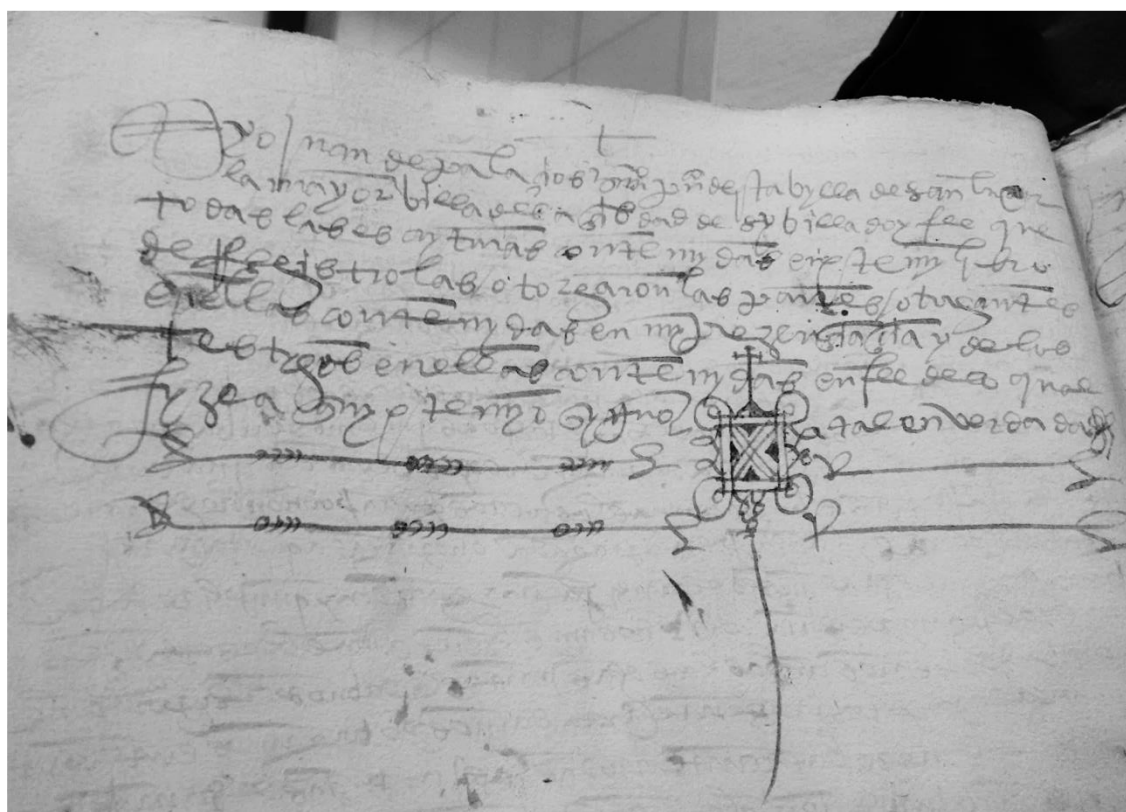 yo juan de palacios escriuano pu° desta bylla de san lucar
la mayor billa de la cibdad de sybilla doy fee que
todas las escryturas contenydas en este my libro
de rregistro las otorgaron las partes otorgantes
en ellas contenydas en my presencia y de los
testigos en ellas contenydas en fee de lo qual
fyze aquy este myo syno a tal en verdad